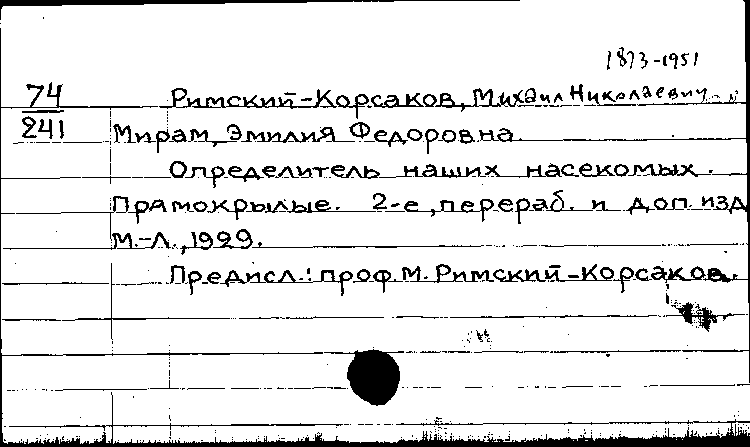 1873-1951
74 Римский-Корсаков, Михаил Николаевич и
241 Мирам, Эмилия Федоровна.
Определитель наших насекомых.
Прямокрылые. 2-е, перераб. и доп. изд
М.-Л., 1929.
Предисл.: проф. М. Римский-Корсаков.